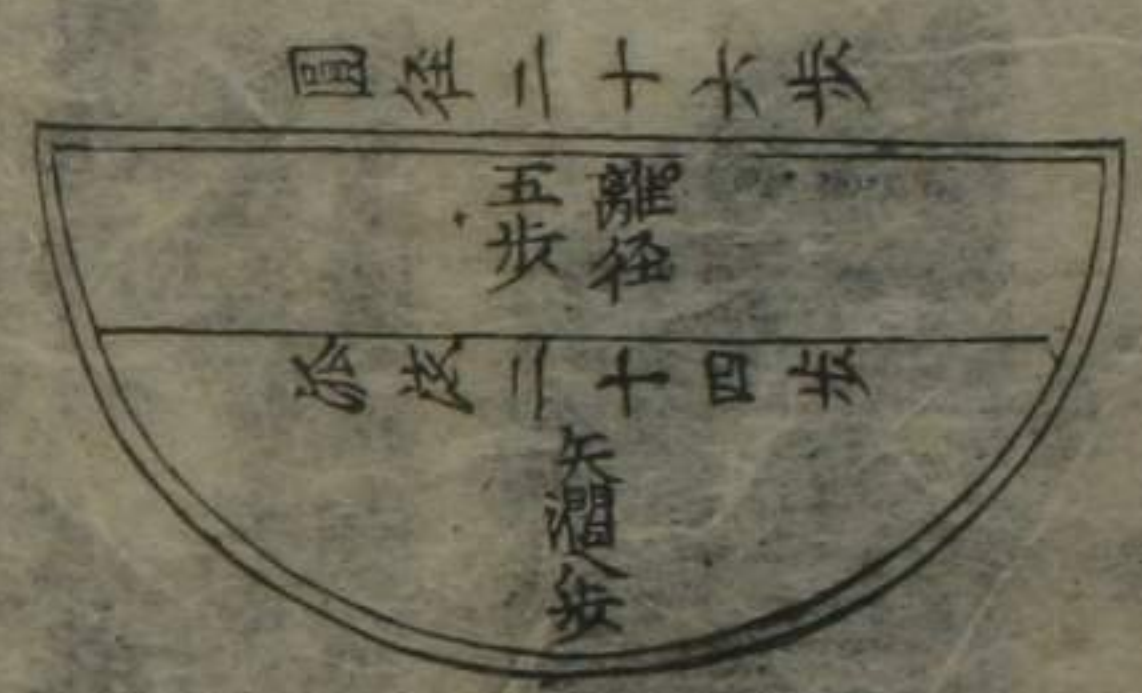 圓径二十六步
離径
五步
弦二十四步
矢濶八步